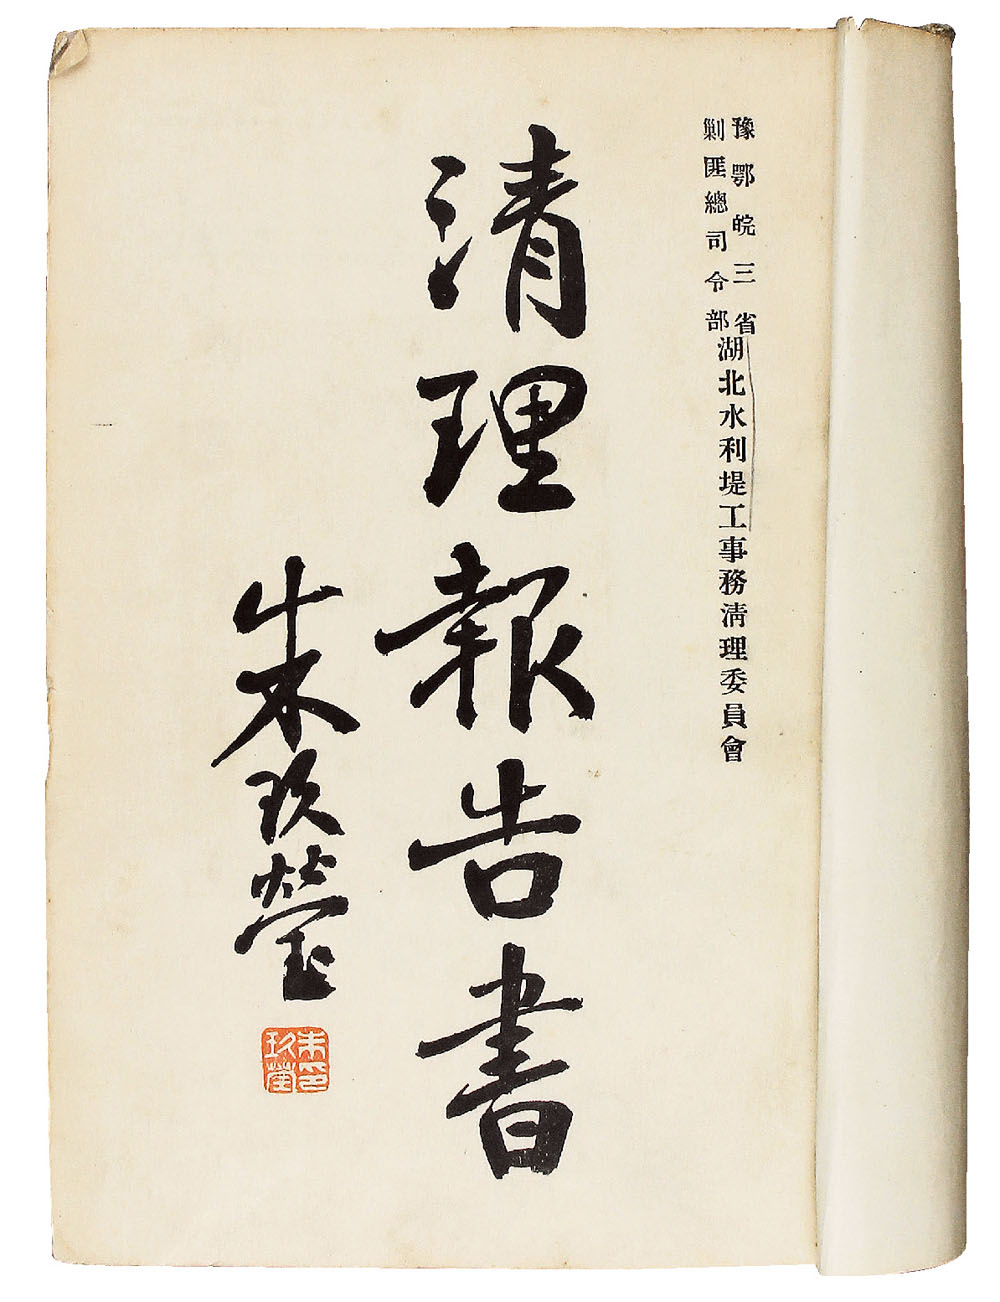 豫鄂皖三省
剿匪總司令部
湖北水利堤工事務清理委員會
清理報告書
朱玖瑩
朱印
玖瑩